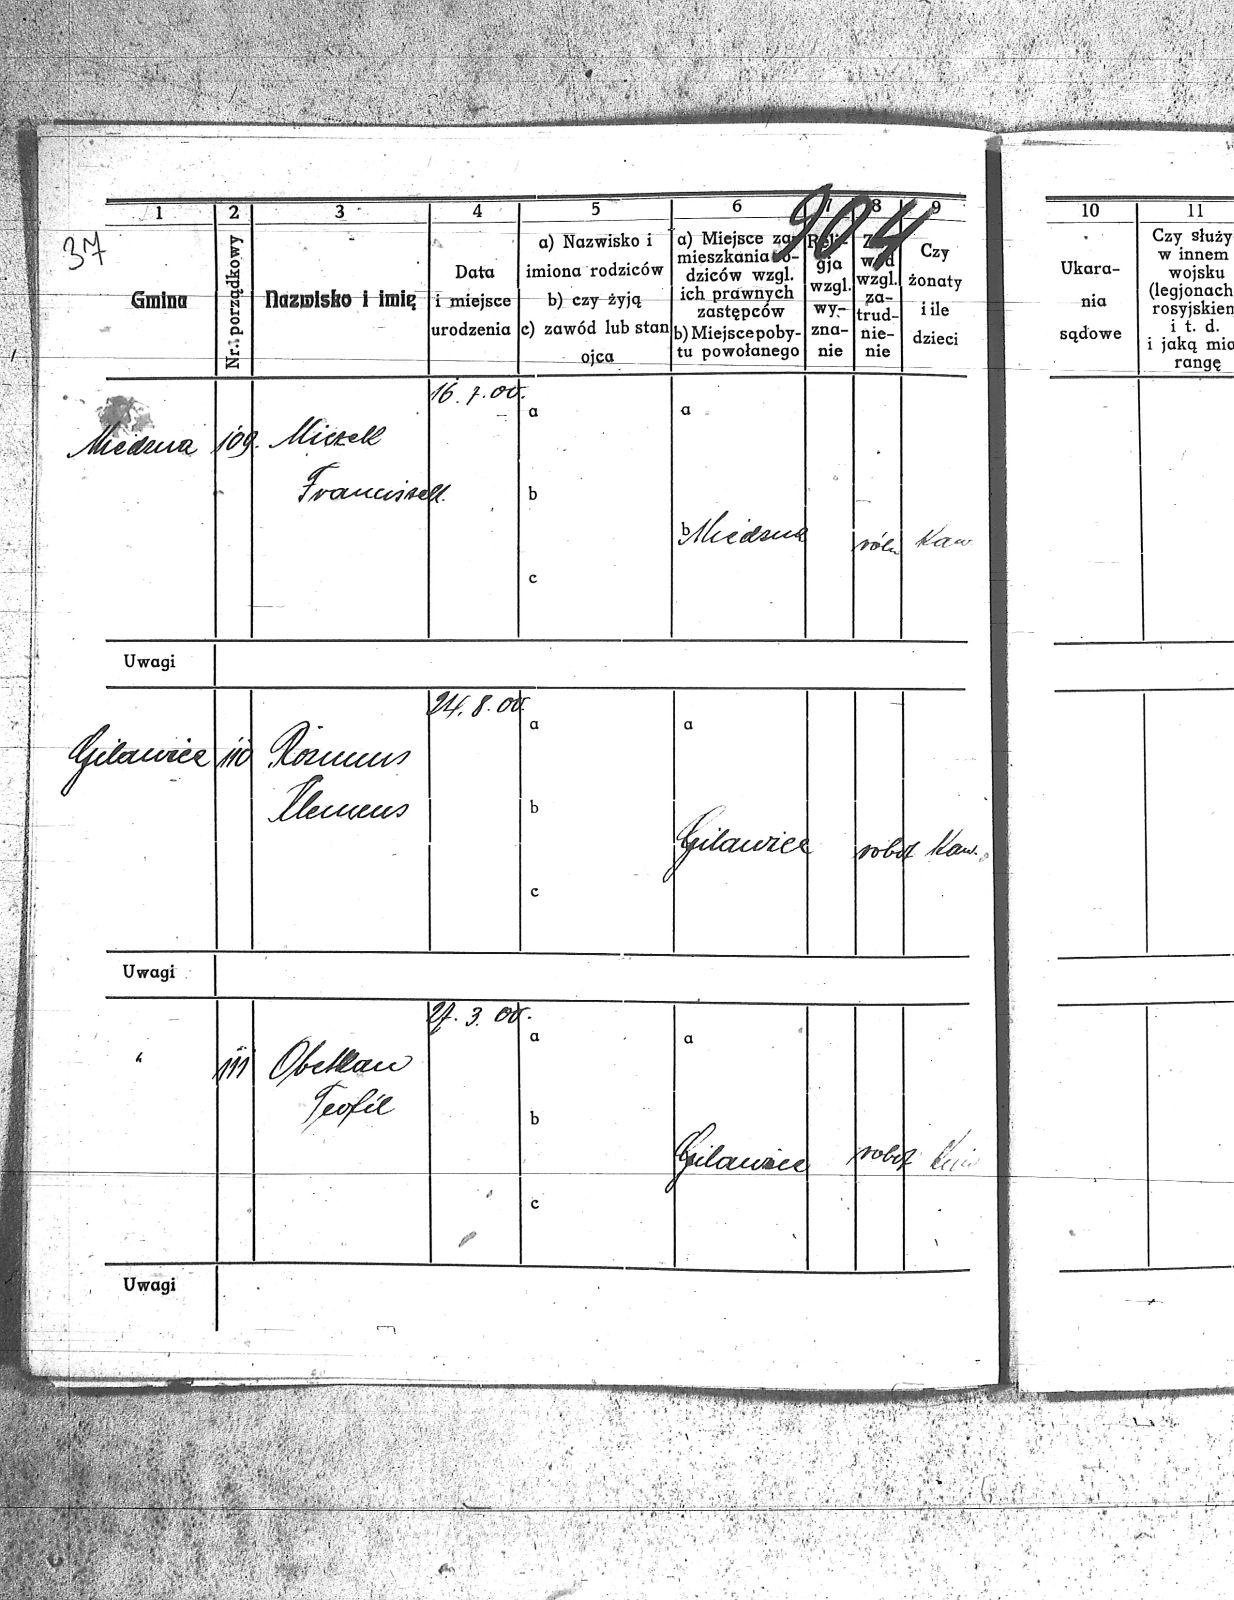 904
37
1 2 3 4 5 6 7 8 9 10 11
Gmina
Nr. porządkowy
Nazwisko i imię
Data
i miejsce
urodzenia
a) Nazwisko i
imiona rodziców
b) czy żyją
c) zawód lub stan
ojca
a) Miejsce za-
mieszkania ro-
dziców wzgl.
ich prawnych
zastępców
b) Miejsce poby-
tu powołanego
Reli-
gja
wzgl.
wy-
zna-
nie
wzgl.
za-
trud-
nie-
nie
Czy
żonaty
i ile
dzieci
Ukara-
nia
sądowe
Czy służy
w innem
wojsku
(legjonach
rosyjskiem
i t. d.
i jaką mia
rangę
16. 7. 00.
a a
Miedzna 109. Miczek
Franciszek
b
b Miedzna roln Kaw
c
Uwagi
24. 8. 00.
a a
Gilawice 110 Rozmus
Klemens
b
Gilawice robot Kaw.
c
Uwagi
27. 3. 00.
a a
" 111
Teofil
b
Gilawice robot
c
Uwagi